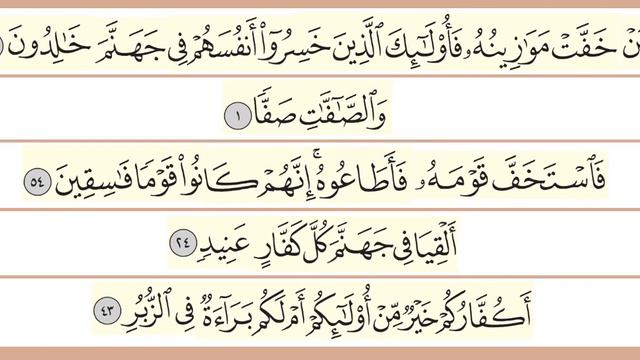 خَفَّتْ مَوَٰزِينُهُۥ فَأُو۟لَـٰٓئِكَ ٱلَّذِينَ خَسِرُوٓا۟ أَنفُسَهُمْ فِى جَهَنَّمَ خَـٰلِدُونَ
وَٱلصَّـٰٓفَّـٰتِ صَفًّا ١
فَٱسْتَخَفَّ قَوْمَهُۥ فَأَطَاعُوهُ ۚ إِنَّهُمْ كَانُوا۟ قَوْمًا فَـٰسِقِينَ ٥٤
أَلْقِيَا فِى جَهَنَّمَ كُلَّ كَفَّارٍ عَنِيدٍ ٢٤
أَكُفَّارُكُمْ خَيْرٌ مِّنْ أُو۟لَـٰٓئِكُمْ أَمْ لَكُم بَرَآءَةٌ فِى ٱلزُّبُرِ ٤٣